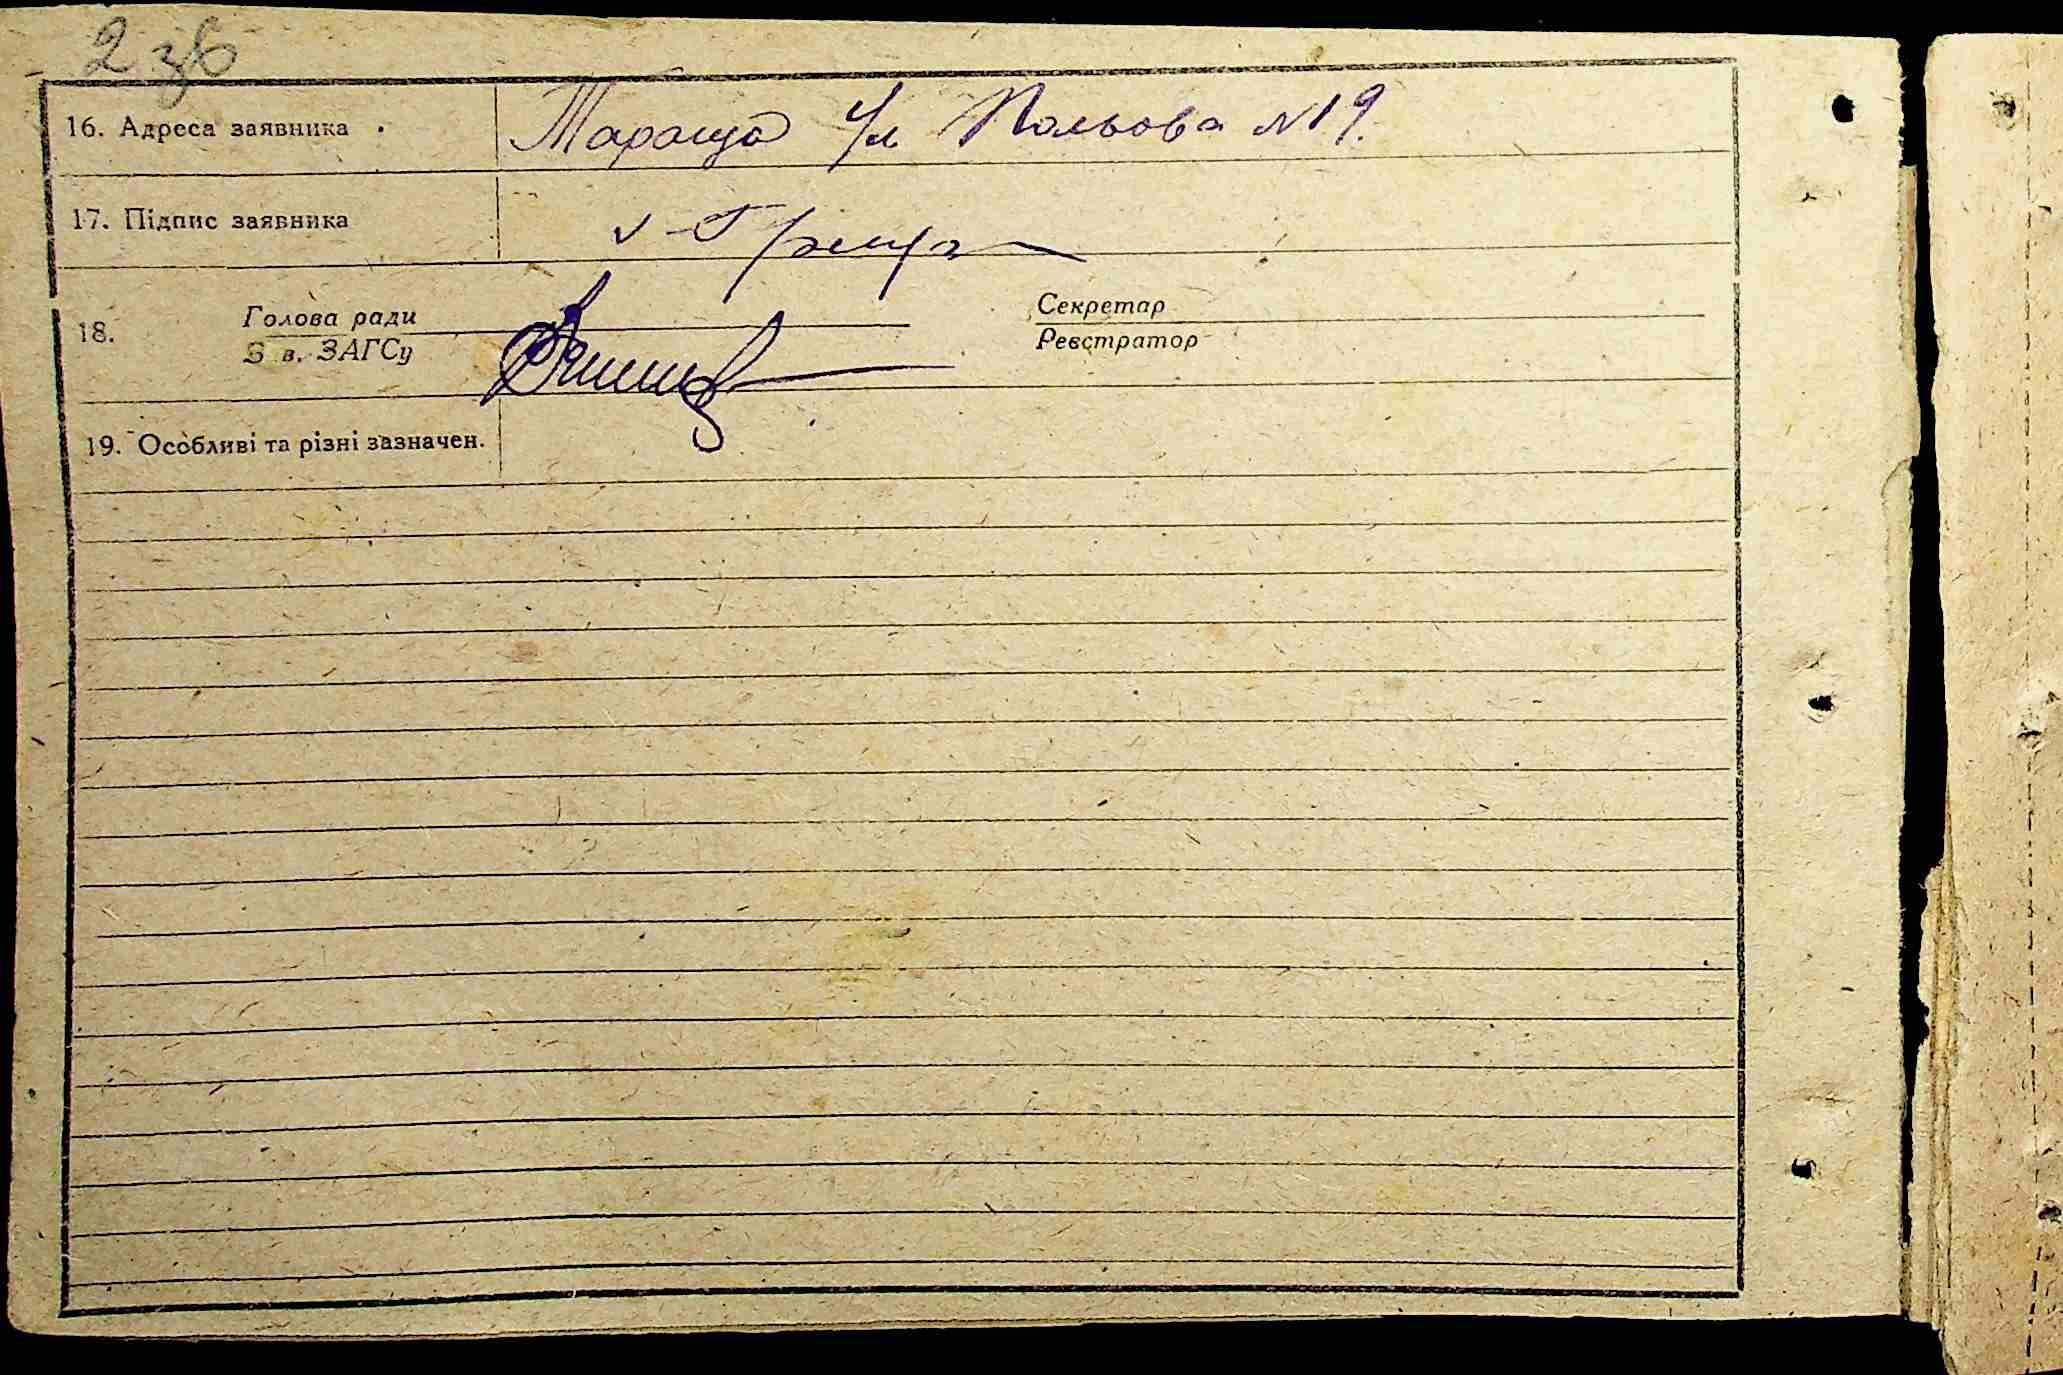 2 зб
16. Адреса заявника Тараща Ул Польова N19.
17. Підпис заявника
18. Голова ради Секретар
З в. ЗАГСу Реєстратор
19. Особливі та різні зазначен.